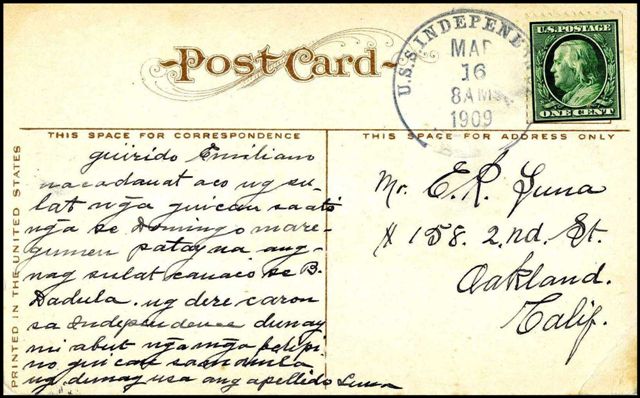 Post Card
U.S.S. INDEPENDENCE
MAR
16
8 AM
1909
U.S. POSTAGE
ONE CENT
THIS SPACE FOR CORRESPONDENCE
THIS SPACE FOR ADDRESS ONLY
PRINTED IN THE UNITED STATES
Quirido Emiliano
nacadauat aco ug su-
lat nga guican saato
nga se Domingo mare-
gumen patay na ang-
nag sulat canaco se B.
Dadula. ug dere caron
sa Independence dunay
mi abut nga mga felipi-
no guican saManila
ug dunay usa ang apellido Luna
Mr. E. R. Luna
# 158. 2.nd. St.
Oakland.
Calif.